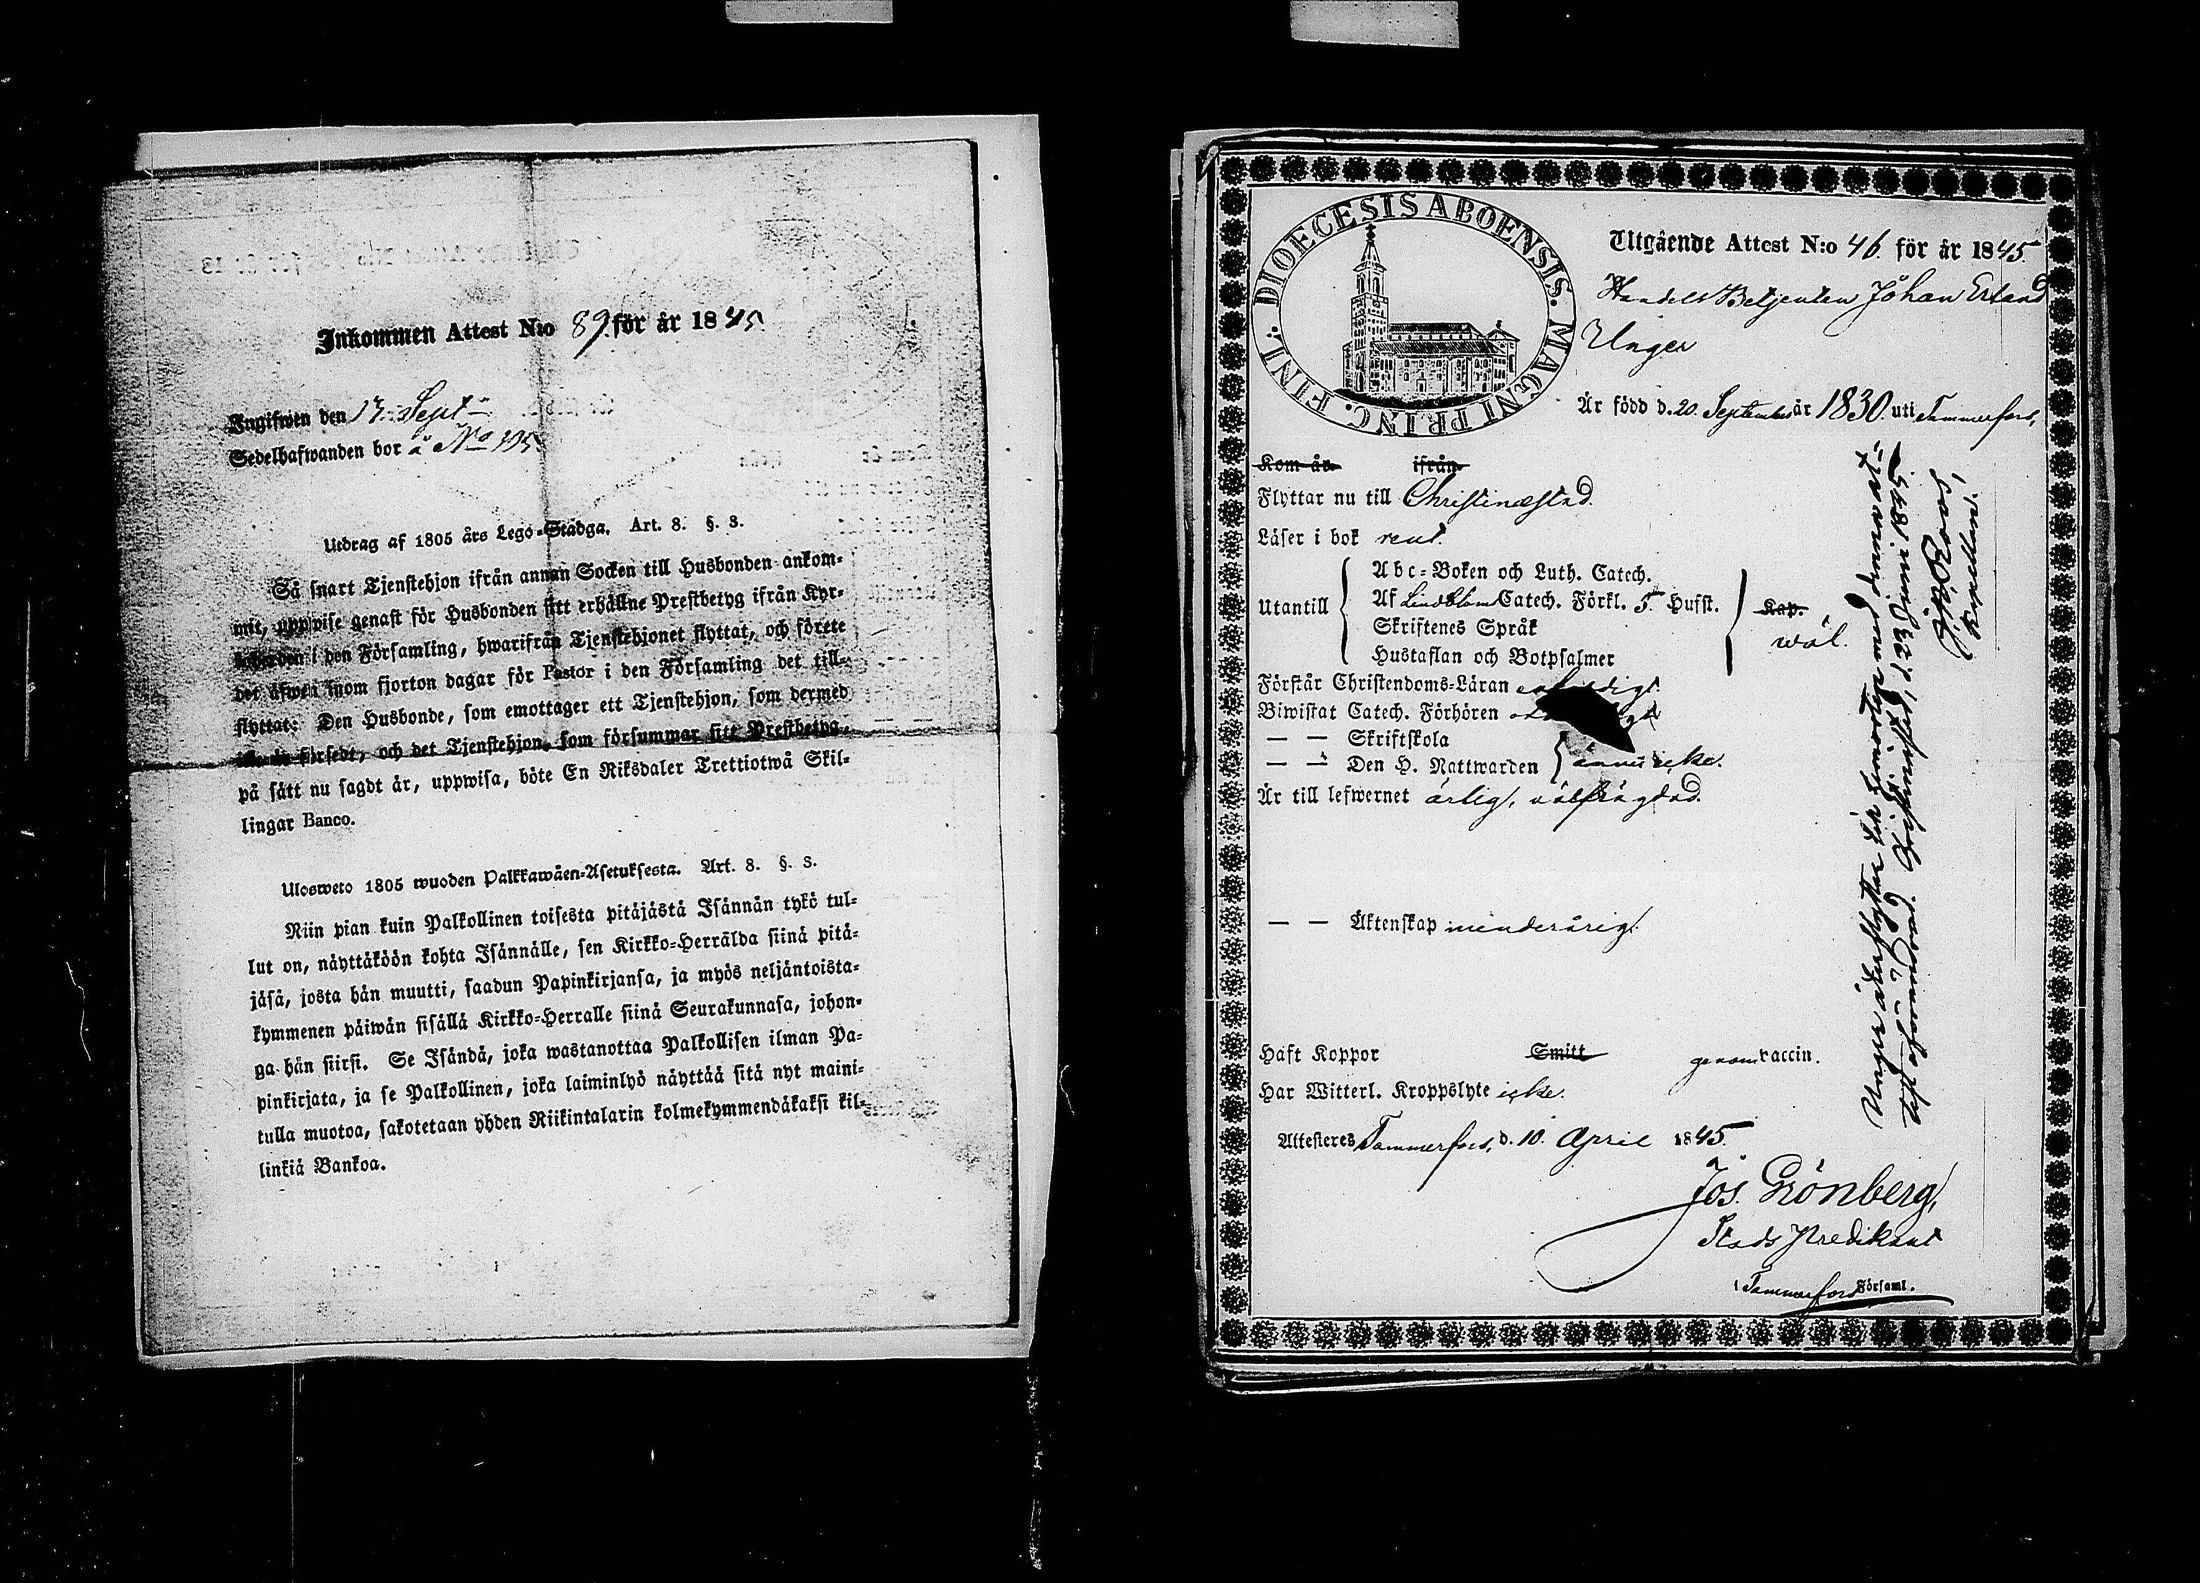 Inkommen Attest N:o 89. för år 1845.
Ingifwen den 13. Sept:
Sedelhafwanden bor å No 195
Utdrag af 1805 års Lego-Stadga. Art. 8. §. 3.
Så snart Tjenstehjon ifrån annan Socken till Husbonden ankom-
mit, uppwise genast för Husbonden sitt erhållne Prestbetyg ifrån Kyr-
i den Församling, hwarifrån Tjenstehjonet flyttat, och förete
det äfwen inom fjorton dagar för Pastor i den Församling det till-
flyttat: Den Husbonde, som emottager ett Tjenstehjon, som dermed
är försedt, och det Tjenstehjon, som försummar sitt Prestbetyg,
på sätt nu sagdt är, uppwisa, böte En Riksdaler Trettiotwå Skil-
lingar Banco.
Ulosweto 1805 wuoden Palkkawäen-Asetuksesta. Art. 8. §. 3.
Niin pian kuin Palkollinen toisesta pitäjästä Isännän tykö tul-
lut on, näyttäköön kohta Isännälle, sen Kirkko-Herralda siinä pitä-
jäsä, josta hän muutti, saadun Papinkirjansa, ja myös neljäntoista-
kymmenen päiwän sisällä Kirkko-Herralle siinä Seurakunnasa, johon-
ga hän siirsi. Se Isändä, joka wastanottaa Palkollisen ilman Pa-
pinkirjata, ja se Palkollinen, joka laiminlyö näyttää sitä nyt maini-
tulla muotoa, sakotetaan yhden Riikintalarin kolmekymmendäkaksi kil-
linkiä Bankoa.
DIOECESIS ABOENSIS. MAGNI PRINC. FINL:
Utgående Attest N:o 46. för år 1845.
Handels Betjenten Johan Erland
Unger
Är född d. 20. September år 1830. uti Tammerfors,
Kom år ifrån
Flyttar nu till Christinæstad.
Läser i bok rent.
Utantill
Abc-Boken och Luth. Catech.
Af Lindbloms Catech. Förkl. 5. Hufst.
Skriftenes Språk
Hustaflan och Botpsalmer
Kap.
wäl.
Förstår Christendoms-Läran
Biwistat Catech. Förhören
— — Skriftskola
— — Den H. Nattwarden ännu icke.
Är till lefwernet ärlig, wälfrägdad.
— — Äktenskap minderårig.
Haft Koppor Smitt genom vaccin.
Har Witterl. Kroppslyte icke.
Attesteres Tammerfors, d. 10. April 1845.
Jos. Grönberg,
Stads Predikant
i Tammerfors Församl.